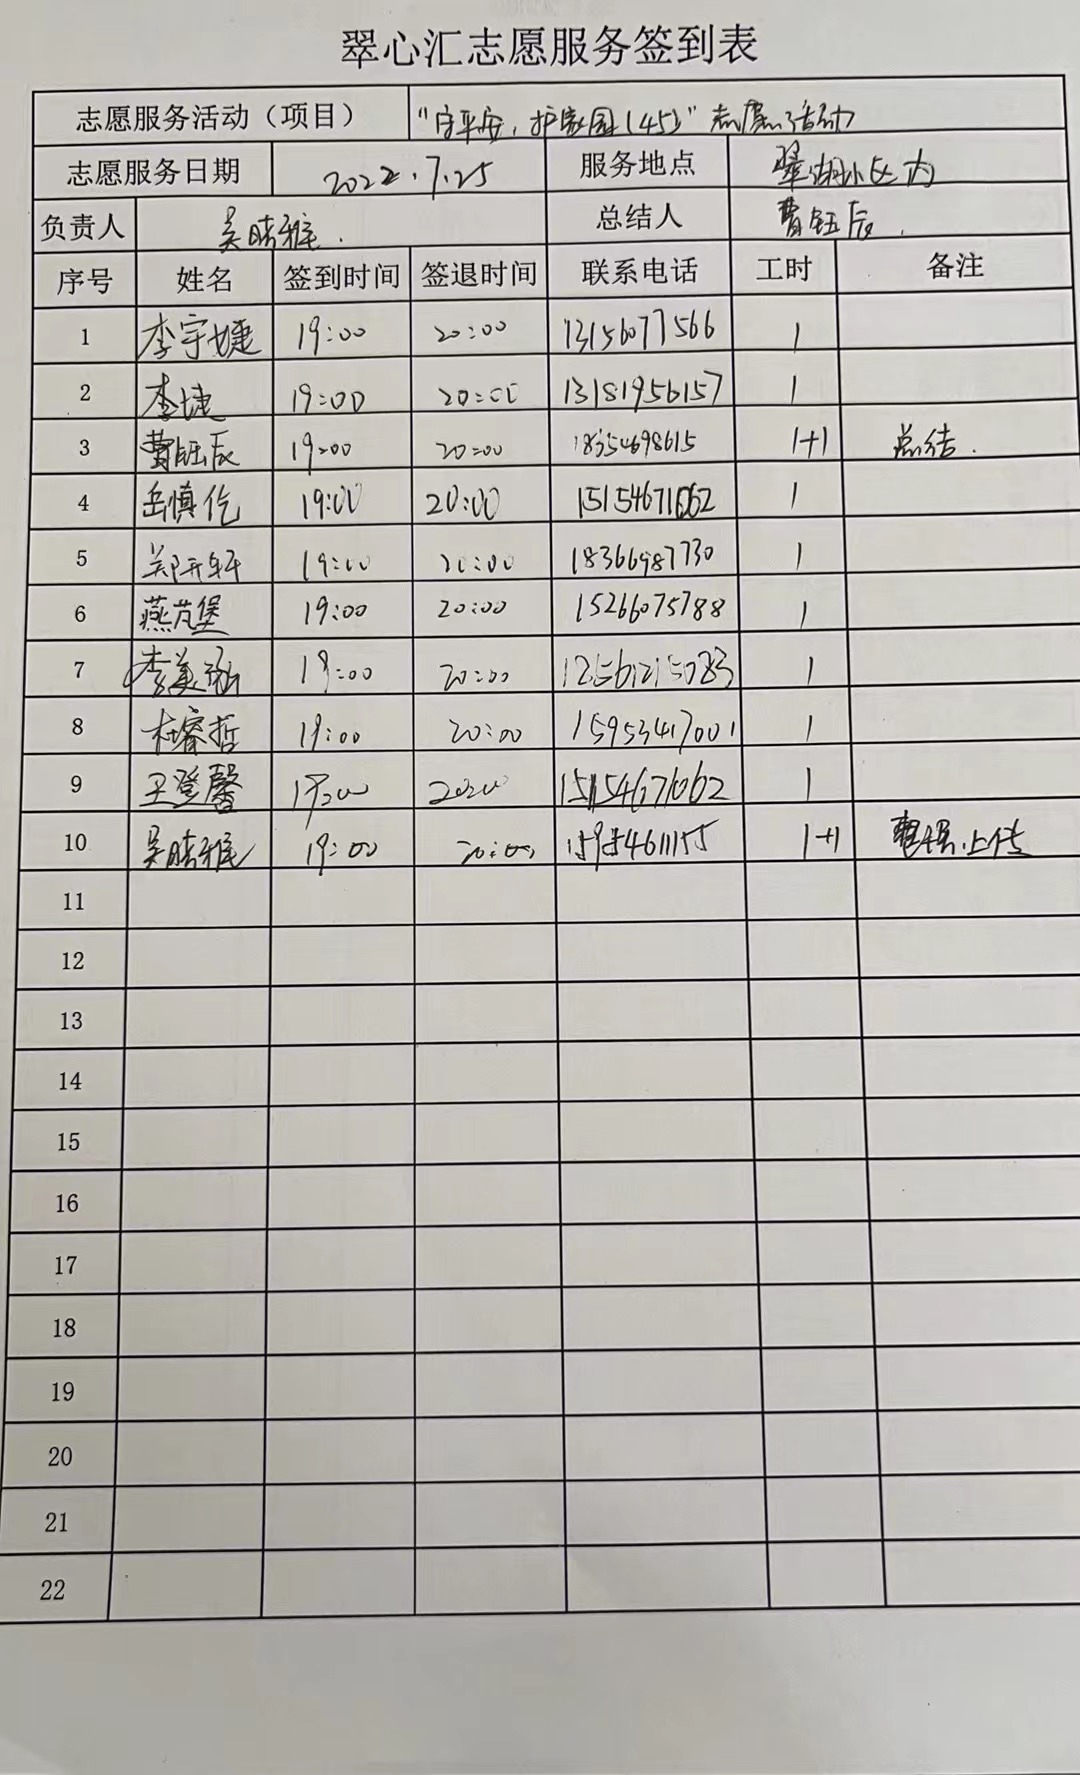 翠心汇志愿服务签到表
志愿服务活动（项目） "守平安，护家园(45)"志愿活动
志愿服务日期 2022.7.25 服务地点 翠湖小区内
负责人 吴晴雅. 总结人 费钰辰.
序号 姓名 签到时间 签退时间 联系电话 工时 备注
1 李宇婕 19:00 20:00 13156077566 1
2 李婕 19:00 20:00 13181956157 1
3 费钰辰 19:00 20:00 18354698615 1+1 总结.
4 岳慎仡 19:00 20:00 15154671062 1
5 郑开轩 19:00 20:00 18366987730 1
6 燕芃堡 19:00 20:00 15266075788 1
7 李美涵 19:00 20:00 1 
8 杜睿哲 19:00 20:00 15953417001 1
9 王登馨 19:00 20:00 15154671062 1
10 吴晴雅 19:00 20:00 15954611155 1+1 上传
11
12
13
14
15
16
17
18
19
20
21
22